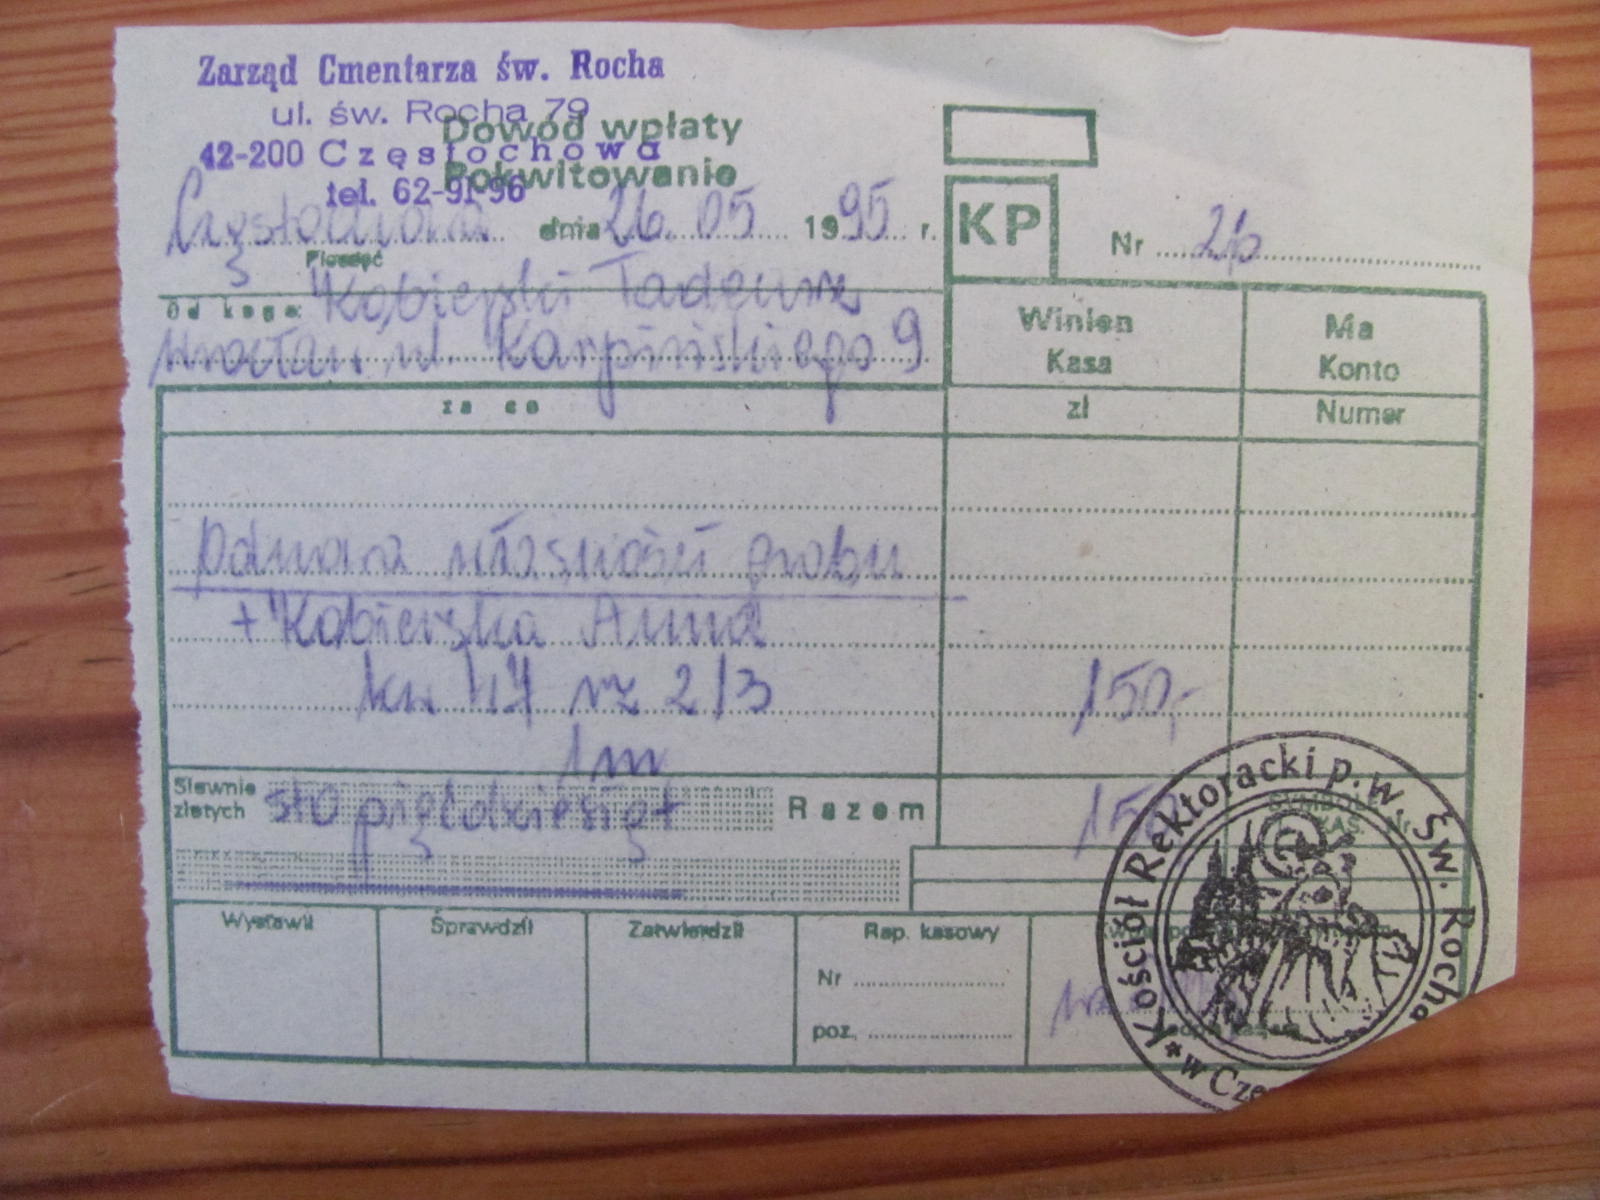 Zarząd Cmentarza św. Rocha
ul. św. Rocha 79
42-200 Częstochowa
tel. 62-91-96
Dowód wpłaty
Pokwitowanie
Częstochowa dnia 26 05 1995 r.
KP
Nr 26
Od kogo: Kobierski Tadeusz
Wrocław ul. Karpińskiego 9
Winien Kasa
Ma Konto
za co
zł
Numer
własności grobu
+ Kobierska Anna
kw 47 rz 2/3
150,-
1m
Słownie złotych sto pięćdziesiąt
Razem
150
SYMBOLE
Wystawił
Sprawdził
Zatwierdził
Rap. kasowy
Nr
poz.
Kościół Rektoracki p.w. Św. Rocha
* w Czę